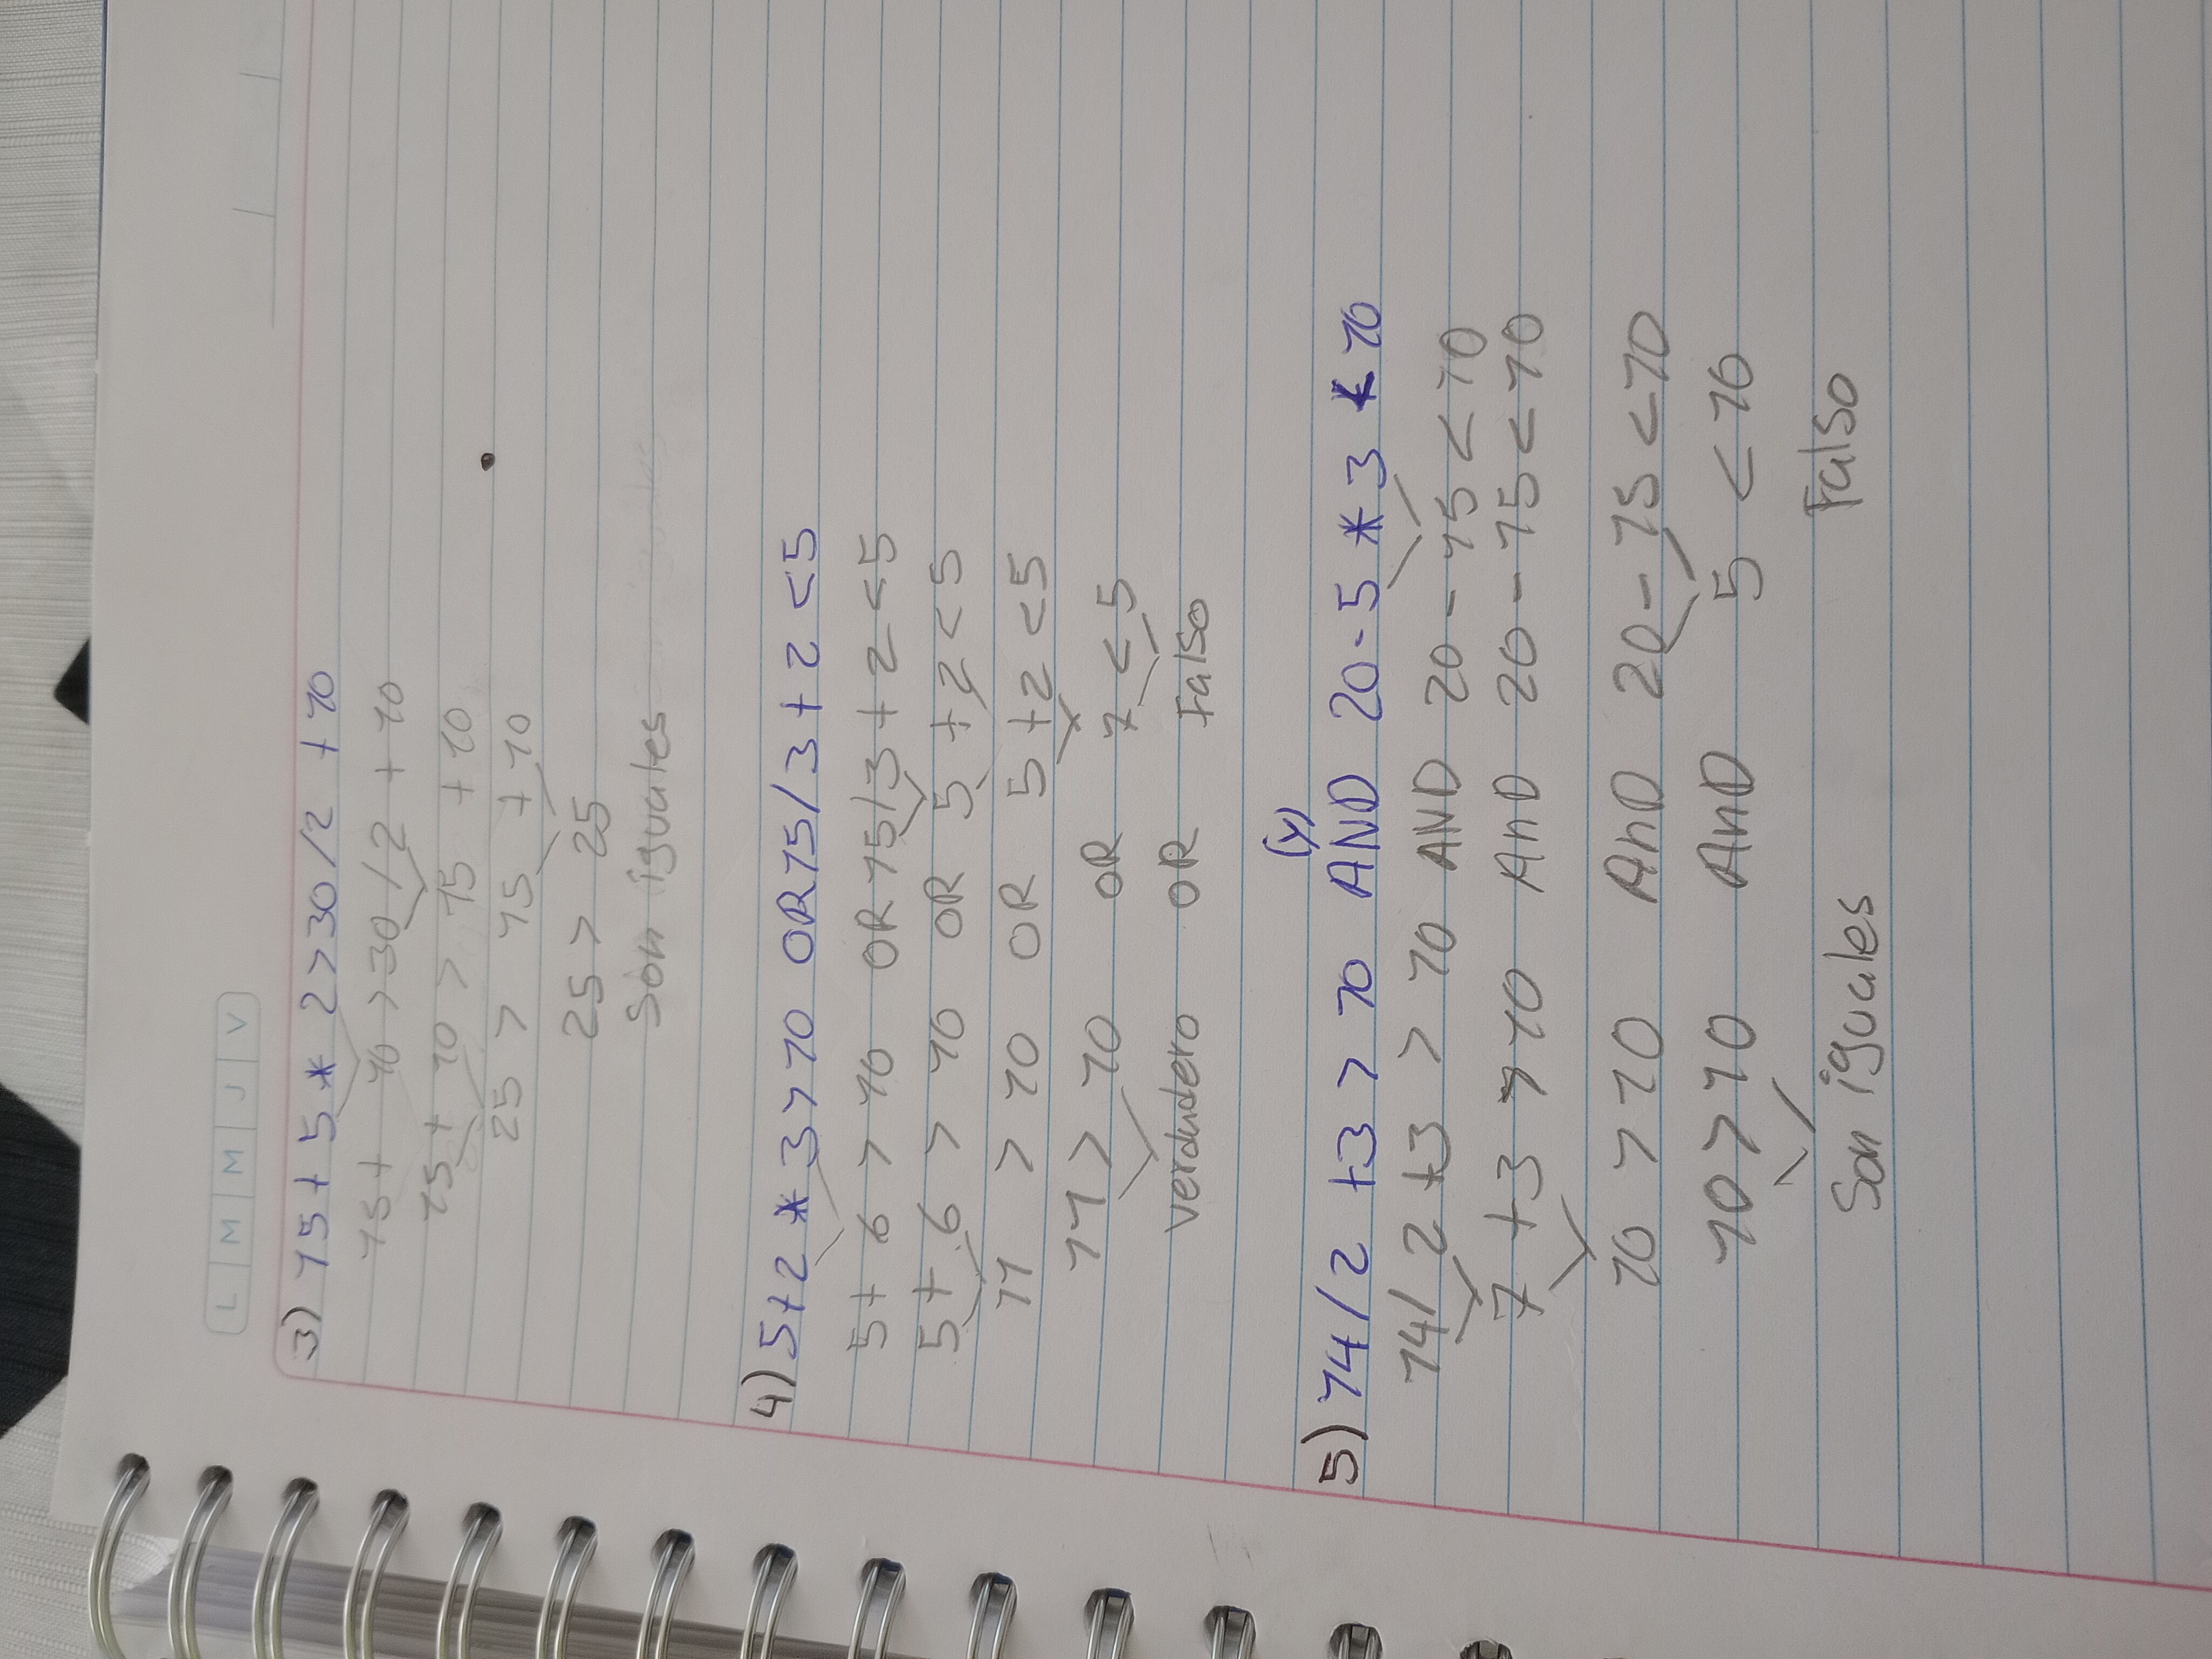 L M M J V
3) 15 + 5 * 2 > 30 / 2 + 10
15 + 10 > 30 / 2 + 10
15 + 10 > 15 + 10
25 > 15 + 10
25 > 25
Son iguales
4) 5 + 2 * 3 > 10 OR 15 / 3 + 2 < 5
5 + 6 > 10 OR 15 / 3 + 2 < 5
5 + 6 > 10 OR 5 + 2 < 5
11 > 10 OR 5 + 2 < 5
11 > 10 OR 7 < 5
verdadero OR Falso
(y)
5) 14 / 2 + 3 > 10 AND 20 - 5 * 3 < 10
14 / 2 + 3 > 10 AND 20 - 15 < 10
7 + 3 > 10 AnD 20 - 15 < 10
10 > 10 AnD 20 - 15 < 10
10 > 10 AnD 5 < 10
Son iguales Falso